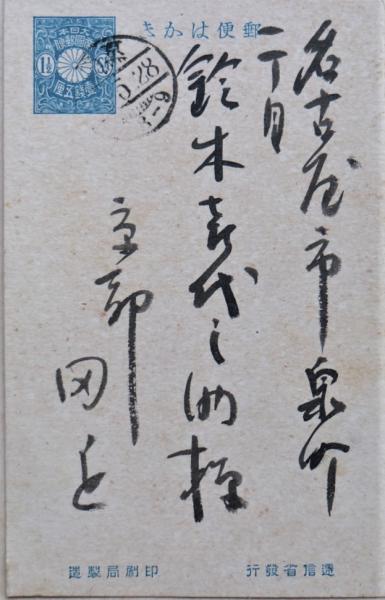 郵便はかき
大日本
帝國郵便
1½
壹錢五厘
28
名古屋市泉町
一丁目
鈴木喜代之助様
京都
遞信省發行
印刷局製造